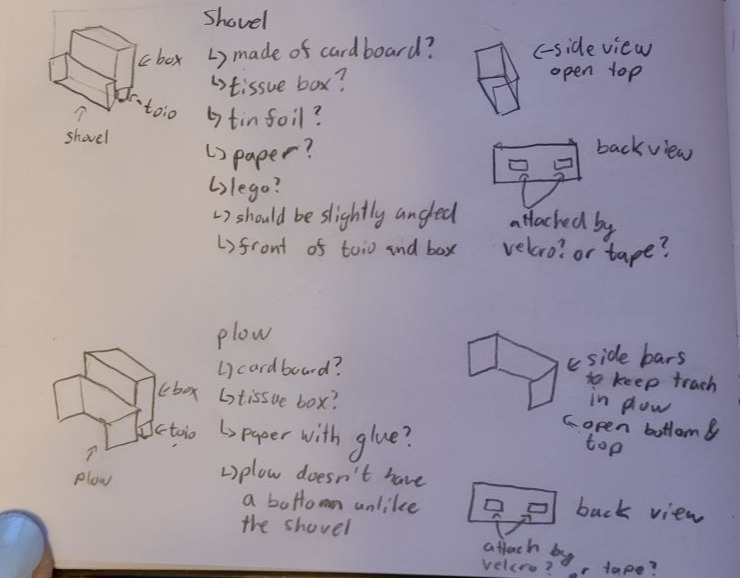 shovel
↳ made of cardboard?
↳ tissue box?
↳ tin foil?
↳ paper?
↳ lego?
↳ should be slightly angled
↳ front of toio and box
← box
← toio
shovel
← side view
open top
back view
attached by
velcro? or tape?
plow
↳ cardboard?
↳ tissue box?
↳ paper with glue?
↳ plow doesn't have
a bottom unlike
the shovel
← box
← toio
plow
← side bars
to keep trash
in plow
← open bottom &
top
back view
attach by
velcro? or tape?